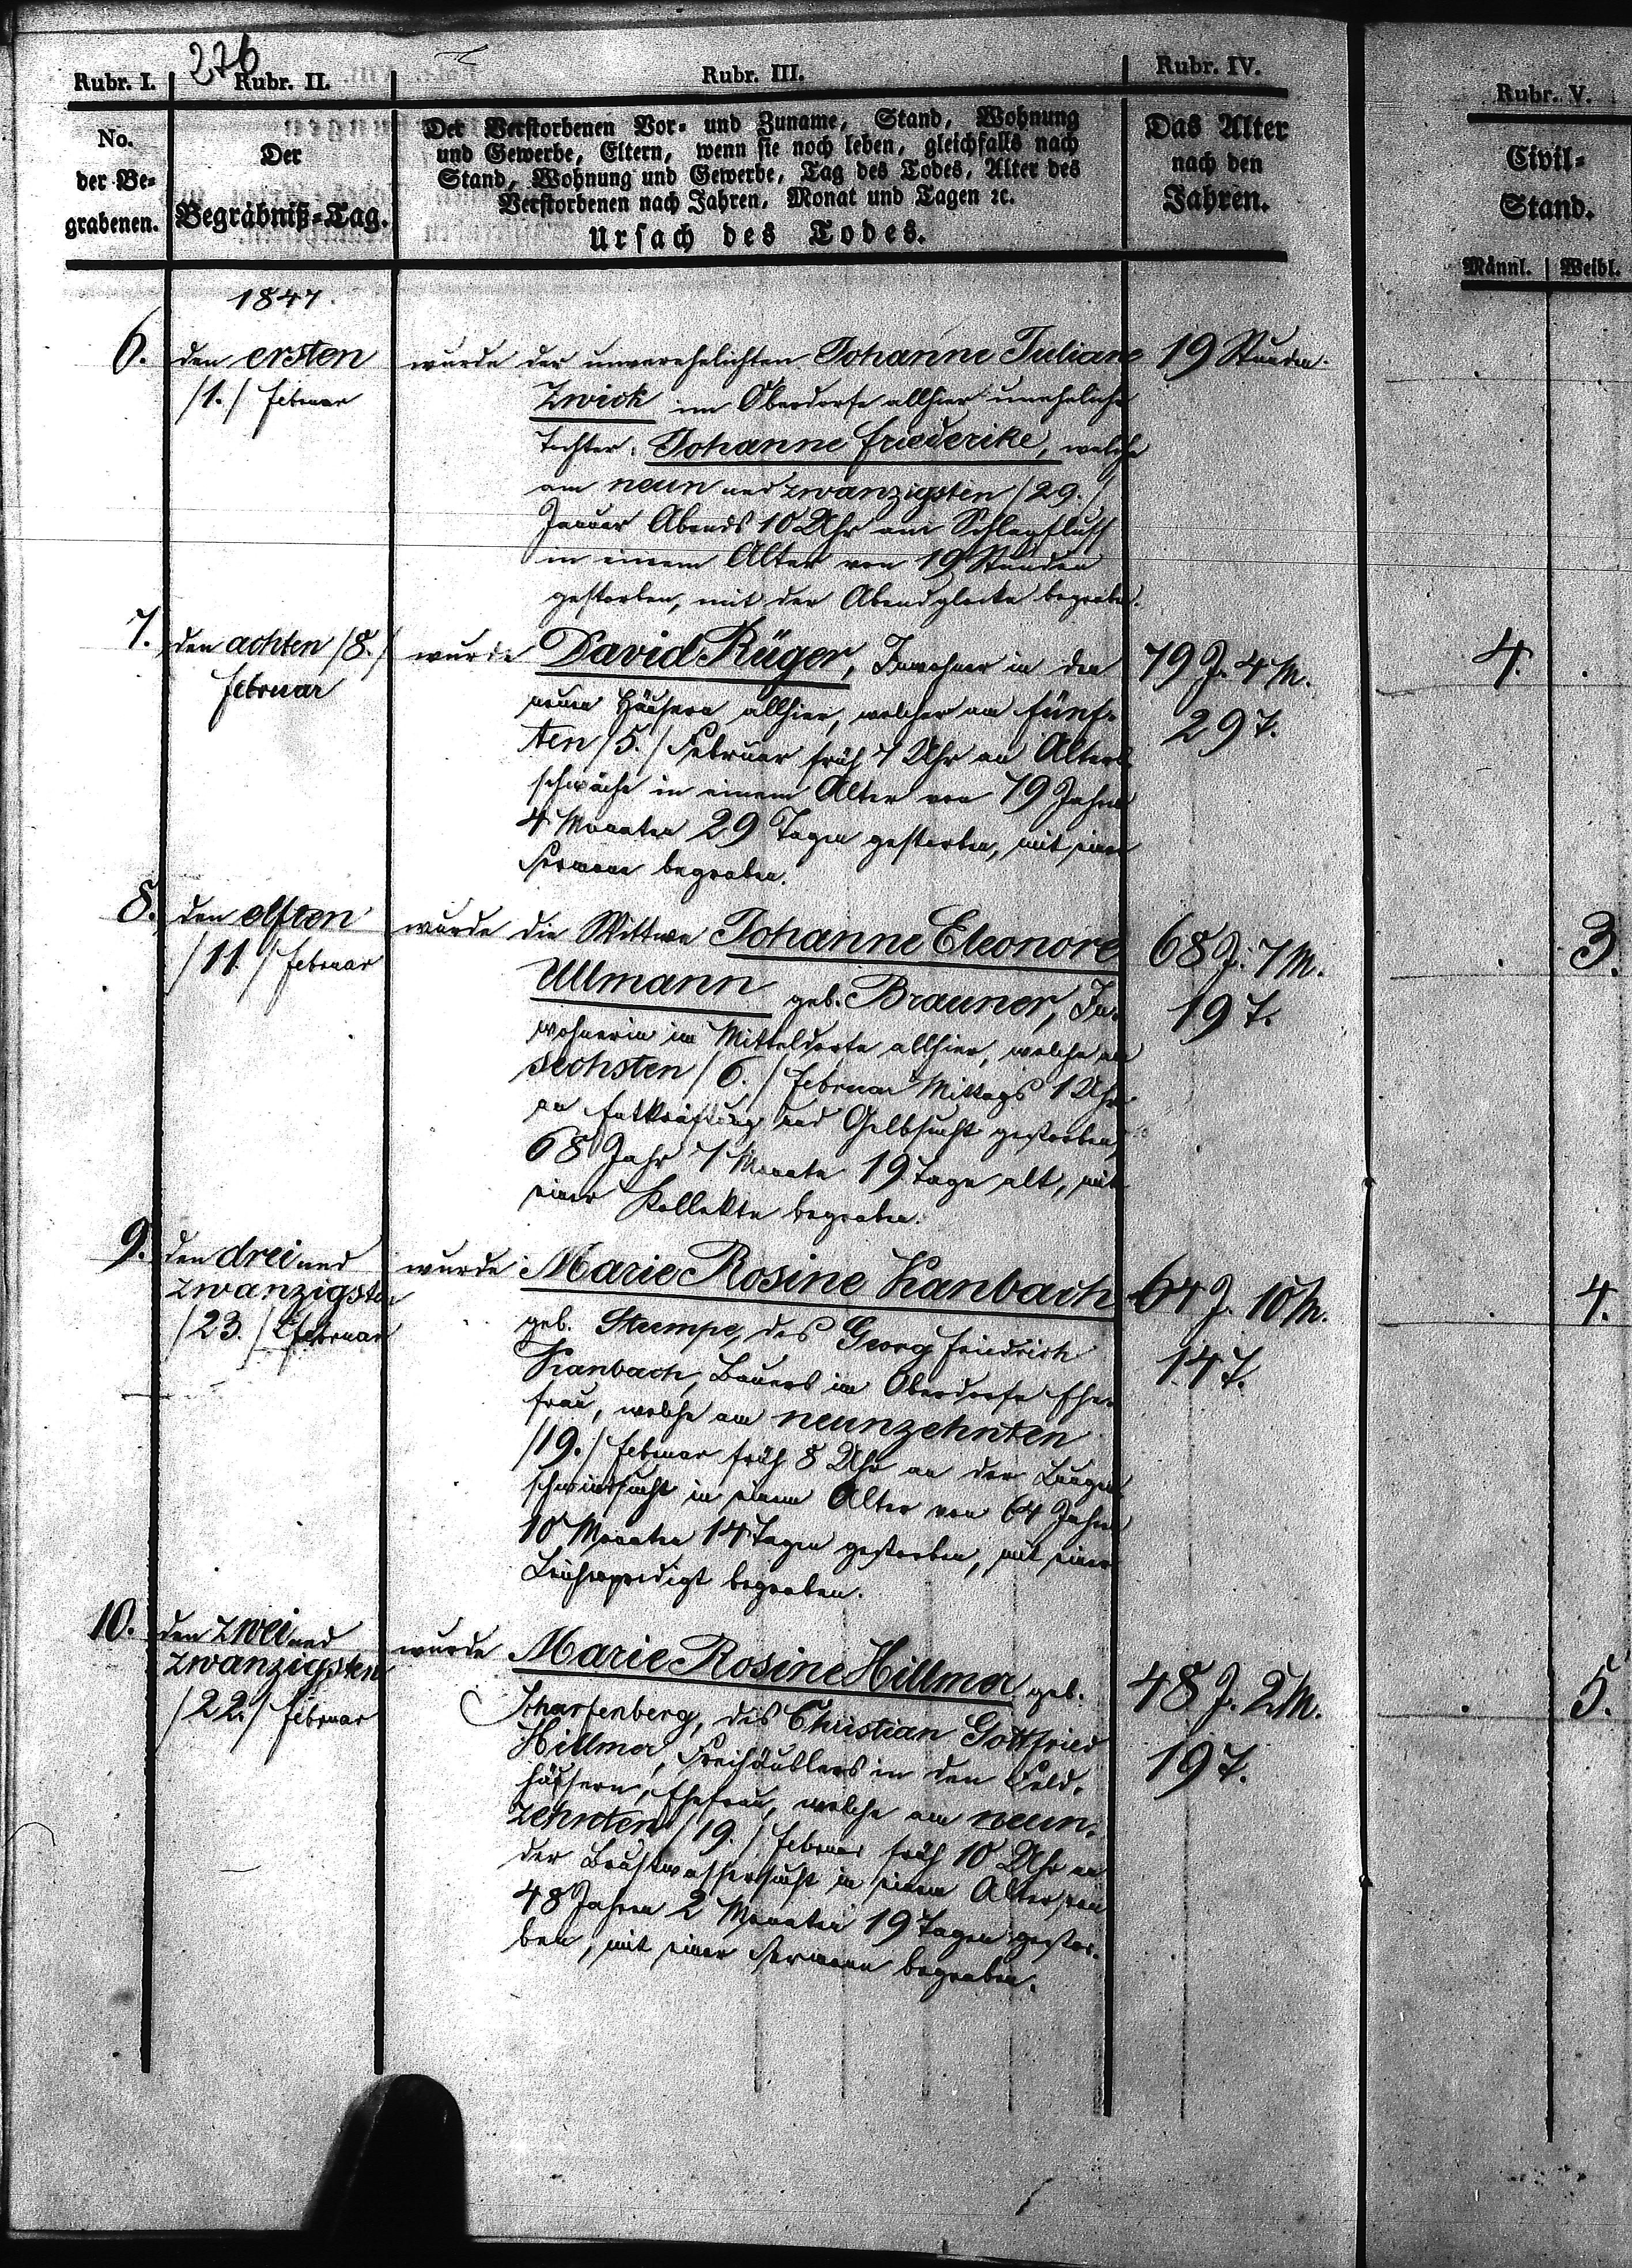 276
Rubr. I. Rubr. II. Rubr. III. Rubr. IV. Rubr. V.
No. der Be-grabenen.
Der Begräbniß-Tag.
Der Verstorbenen Vor- und Zuname, Stand, Wohnung
und Gewerbe, Eltern, wenn sie noch leben, gleichfalls nach
Stand, Wohnung und Gewerbe, Tag des Todes, Alter des
Verstorbenen nach Jahren, Monat und Tagen ꝛc.
Ursach des Todes.
Das Alter
nach den
Jahren.
Civil-
Stand.
Männl. Weibl.
1847.
6. den ersten wurde der unverehelichten Johanne Juliane 19 Stunden.
/1./ Februar Zwick im Oberdorfe allhier uneheliche
Tochter, Johanne Friederike, welche
am neun und zwanzigsten /29./
Januar Abends 10 Uhr am Schlagfluß
in einem Alter von 19 Stunden
gestorben, mit der Abendglocke begraben.
7. den achten /8./ wurde David Rüger, Inwohner in den 79 J. 4 M. 4.
Februar neuen Häusern allhier, welcher am fünf- 29 T.
ten /5./ Februar früh 7 Uhr an Alters-
schwäche in einem Alter von 79 Jahren
4 Monaten 29 Tagen gestorben, mit einem
Sermone begraben.
8. den elften wurde die Wittwe Johanne Eleonore 68 J. 7 M. 3.
/11./ Februar Ullmann geb. Brauner, In- 19 T.
wohnerin im Mitteldorfe allhier, welche am
sechsten /6./ Februar Mittags 1 Uhr
an Entkräftung und Gelbsucht gestorben,
68 Jahr 7 Monate 19 Tage alt, mit
einer Kollekte begraben.
9. den drei und wurde Marie Rosine Kanbach 64 J. 10 M. 4.
zwanzigsten geb. Stumpe, des Georg Friedrich 14 T.
/23./ Februar Kanbach, Bauers im Oberdorfe Ehe-
frau, welche am neunzehnten
/19./ Februar früh 8 Uhr an der Lungen-
schwindsucht in einem Alter von 64 Jahren
10 Monaten 14 Tagen gestorben, mit einer
Leichenpredigt begraben.
10. den zwei und wurde Marie Rosine Hillmer geb. 48 J. 2 M. 5.
zwanzigsten Scharfenberg, des Christian Gottfried 19 T.
/22./ Februar Hillmer, Freihäuslers in den Feld-
häusern, Ehefrau, welche am neun-
zehnten /19./ Februar früh 10 Uhr an
der Brustwassersucht in einem Alter von
48 Jahren 2 Monaten 19 Tagen gestor-
ben, mit einem Sermone begraben.